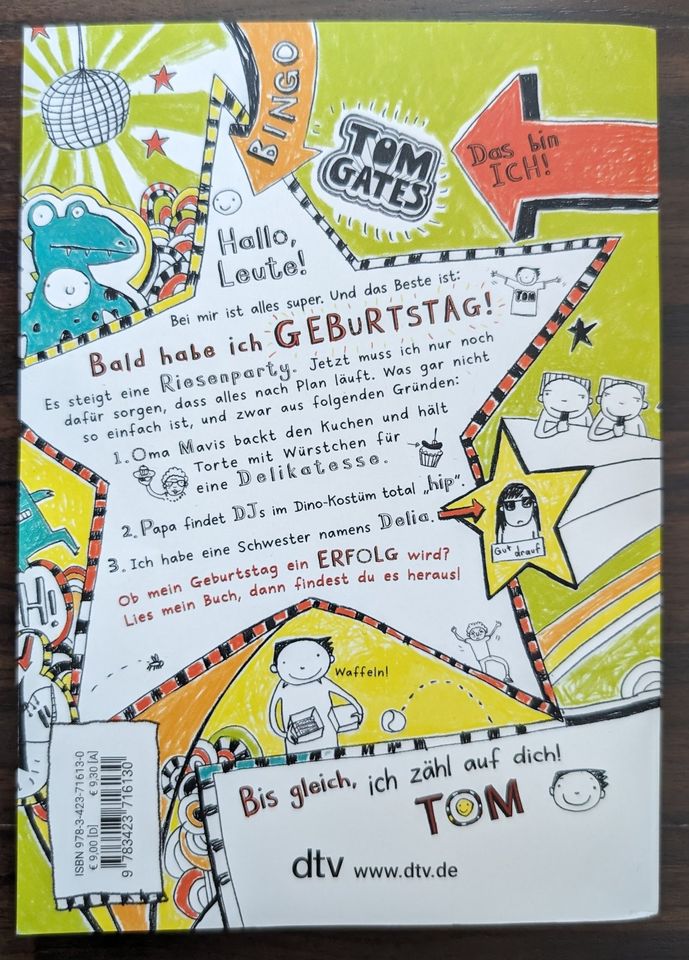 BINGO
TOM
GATES
Das bin
ICH!
Hallo,
Leute!
Bei mir ist alles super. Und das Beste ist:
TOM
Bald habe ich GEBURTSTAG!
Es steigt eine Riesenparty. Jetzt muss ich nur noch
dafür sorgen, dass alles nach Plan läuft. Was gar nicht
so einfach ist, und zwar aus folgenden Gründen:
1. Oma Mavis backt den Kuchen und hält
Torte mit Würstchen für
eine Delikatesse.
2. Papa findet DJs im Dino-Kostüm total „hip".
3. Ich habe eine Schwester namens Delia.
Gut drauf
Ob mein Geburtstag ein ERFOLG wird?
Lies mein Buch, dann findest du es heraus!
H!
Waffeln!
Bis gleich, ich zähl auf dich!
TOM
dtv www.dtv.de
ISBN 978-3-423-71613-0
€ 9,00 [D] € 9,30 [A]
9 783423 716130